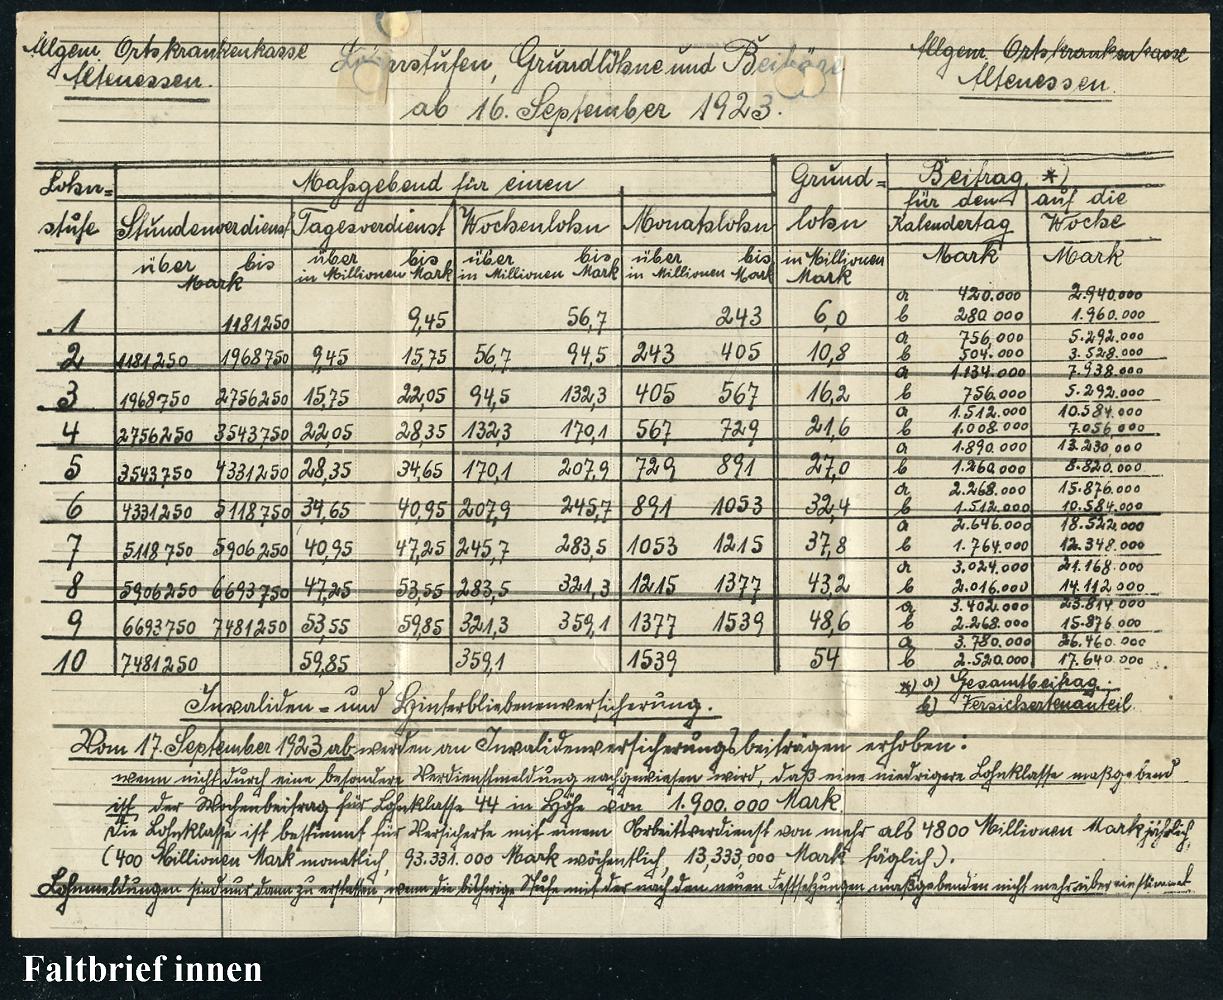 Allgem. Ortskrankenkasse
Altenessen.
Lohnstufen, Grundlöhne und Beiträge
ab 16. September 1923.
Allgem. Ortskrankenkasse
Altenessen.
Lohn= Maßgebend für einen Grund= Beitrag *)
stufe Stundenverdienst Tagesverdienst Wochenlohn Monatslohn lohn für den Kalendertag auf die Woche
über bis Mark über bis in Millionen Mark über bis in Millionen Mark über bis in Millionen Mark in Millionen Mark Mark Mark
1 1181250 9,45 56,7 243 6,0 a 420.000 2.940.000
b 280 000 1.960.000
2 1181250 1968750 9,45 15,75 56,7 94,5 243 405 10,8 a 756,000 5.292.000
b 504.000 3.528.000
3 1968750 2756250 15,75 22,05 94,5 132,3 405 567 16,2 a 1.134.000 7.938.000
b 756.000 5.292.000
4 2756250 3543750 22,05 28,35 132,3 170,1 567 729 21,6 a 1.512.000 10.584.000
b 1.008.000 7.056,000
5 3543750 4331250 28,35 34,65 170,1 207,9 729 891 27,0 a 1.890.000 13.230.000
b 1.260.000 8.820.000
6 4331250 5118750 34,65 40,95 207,9 245,7 891 1053 32,4 a 2.268.000 15.876.000
b 1.512.000 10.584.000
7 5118750 5906250 40,95 47,25 245,7 283,5 1053 1215 37,8 a 2.646.000 18.522.000
b 1.764.000 12.348.000
8 5906250 6693750 47,25 53,55 283,5 321,3 1215 1377 43,2 a 3.024.000 21.168.000
b 2.016.000 14.112.000
9 6693750 7481250 53,55 59,85 321,3 359,1 1377 1539 48,6 a 3.402.000 23.814.000
b 2.268.000 15.876.000
10 7481250 59,85 359,1 1539 54 a 3.780.000 26.460.000
b 2.520.000 17.640.000
*) a) Gesamtbeitrag.
b) Versichertenanteil.
Invaliden- und Hinterbliebenenversicherung.
Vom 17. September 1923 ab werden an Invalidenversicherungsbeiträgen erhoben:
wenn nicht durch eine besondere Verdienstmeldung nachgewiesen wird, daß eine niedrigere Lohnklasse maßgebend
ist, der Wochenbeitrag für Lohnklasse 44 in Höhe von 1.900.000 Mark.
Die Lohnklasse ist bestimmt für Versicherte mit einem Arbeitsverdienst von mehr als 4800 Millionen Mark jährlich,
(400 Millionen Mark monatlich, 93.331.000 Mark wöchentlich, 13,333,000 Mark täglich).
Lohnmeldungen sind nur dann zu erstatten, wenn die bisherige Stufe mit der nach den neuen Festsetzungen maßgebenden nicht mehr übereinstimmt.
Faltbrief innen